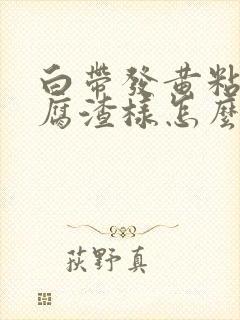 白帶發黃粘
腐渣樣怎麼
荻野真